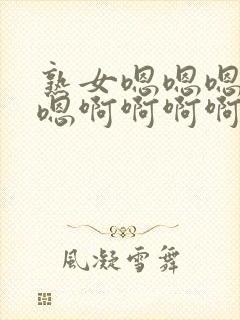 熟女嗯嗯嗯
嗯啊啊啊啊
風凝雪舞